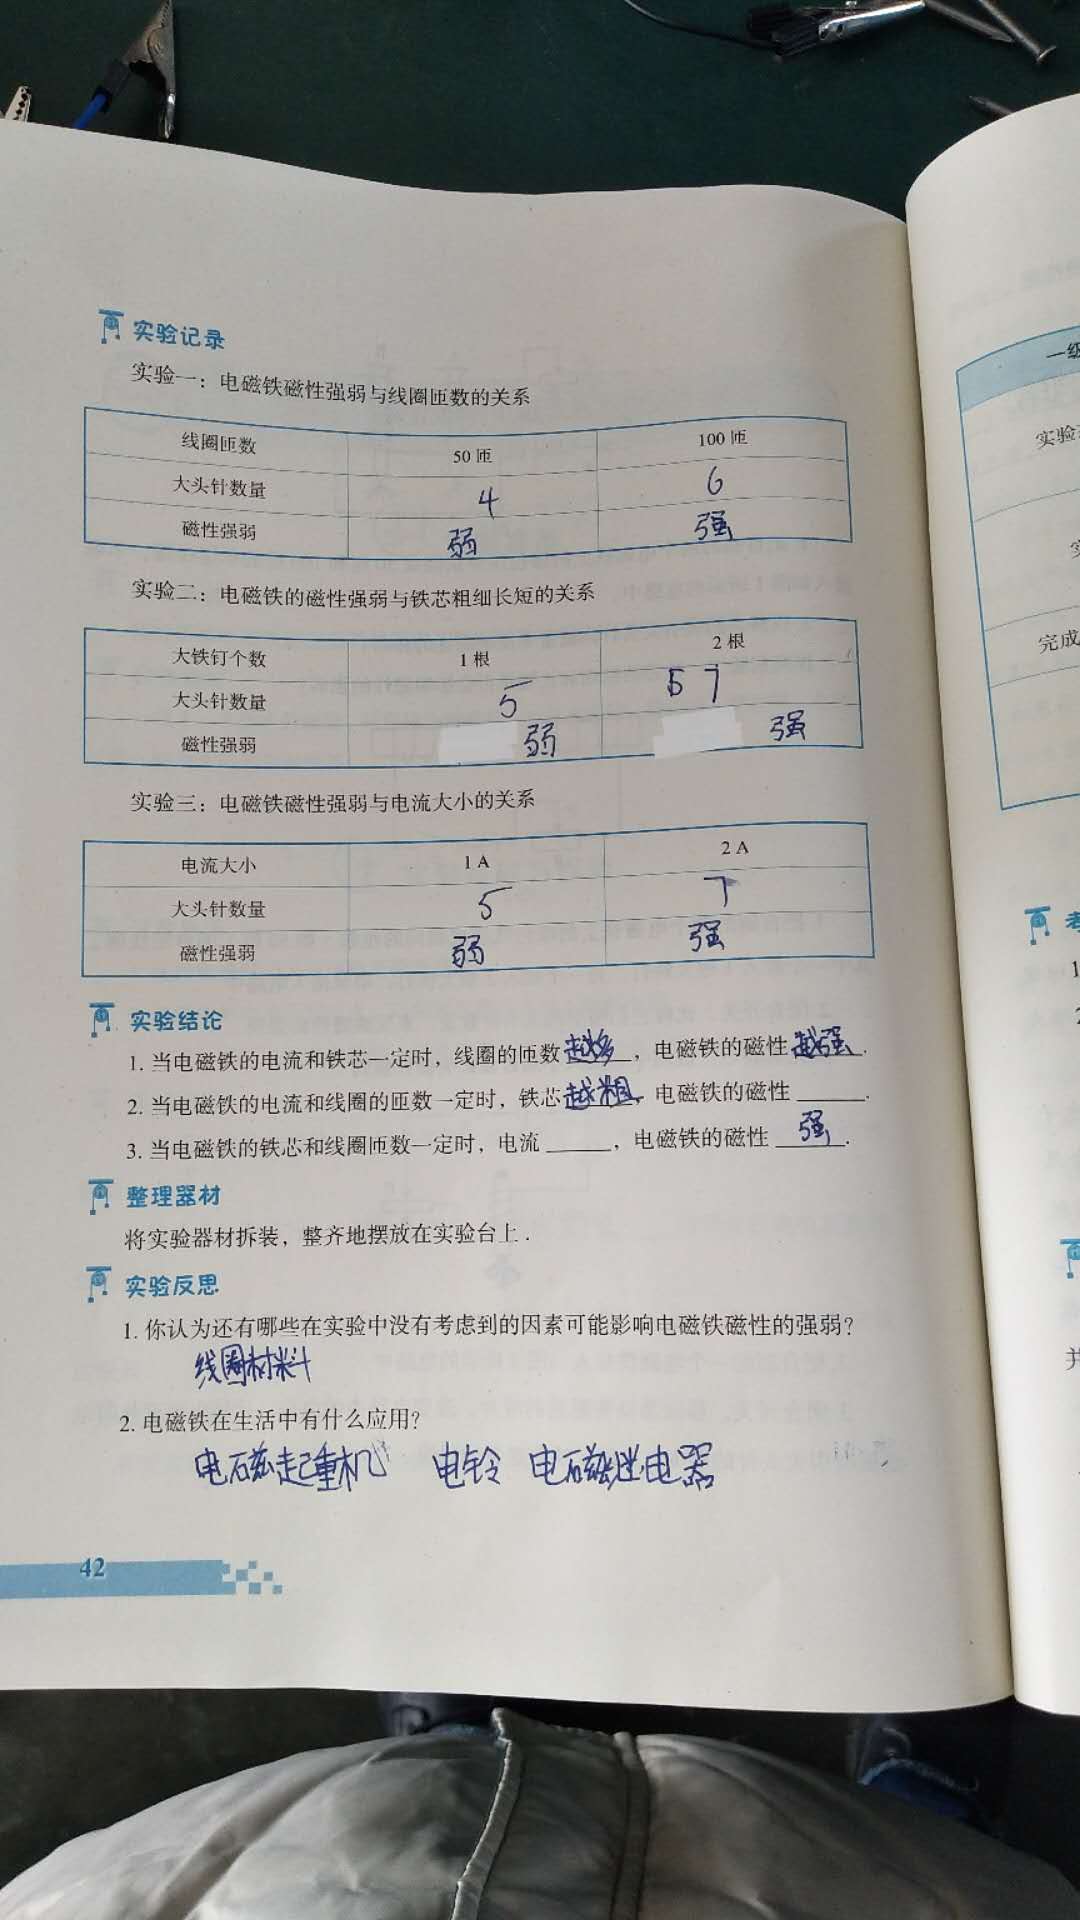 实验记录
实验一：电磁铁磁性强弱与线圈匝数的关系
线圈匝数 50 匝 100 匝
大头针数量 4 6
磁性强弱 弱 强
实验二：电磁铁的磁性强弱与铁芯粗细长短的关系
大铁钉个数 1 根 2 根
大头针数量 5 7
磁性强弱 弱 强
实验三：电磁铁磁性强弱与电流大小的关系
电流大小 1 A 2 A
大头针数量 5 7
磁性强弱 弱 强
实验结论
1. 当电磁铁的电流和铁芯一定时，线圈的匝数越多，电磁铁的磁性越强.
2. 当电磁铁的电流和线圈的匝数一定时，铁芯越粗，电磁铁的磁性______.
3. 当电磁铁的铁芯和线圈匝数一定时，电流______，电磁铁的磁性强.
整理器材
将实验器材拆装，整齐地摆放在实验台上.
实验反思
1. 你认为还有哪些在实验中没有考虑到的因素可能影响电磁铁磁性的强弱？
线圈材料
2. 电磁铁在生活中有什么应用？
电磁起重机 电铃 电磁继电器
42
一级
实验
完成